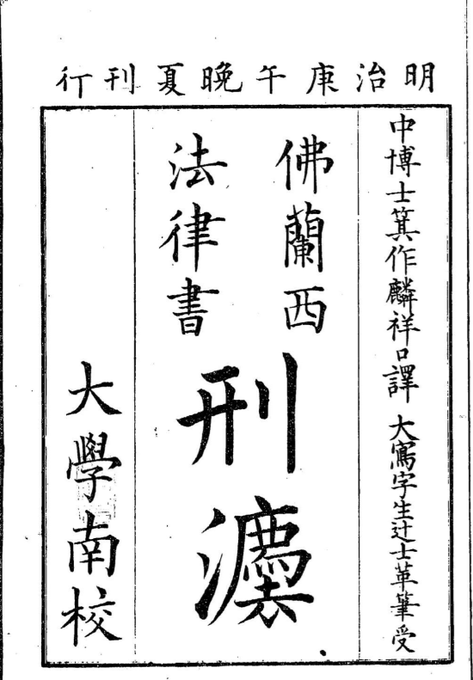 明治庚午晩夏刊行
中博士箕作麟祥口譯 大寫字生辻士革筆受
佛蘭西
法律書
刑灋
大學南校